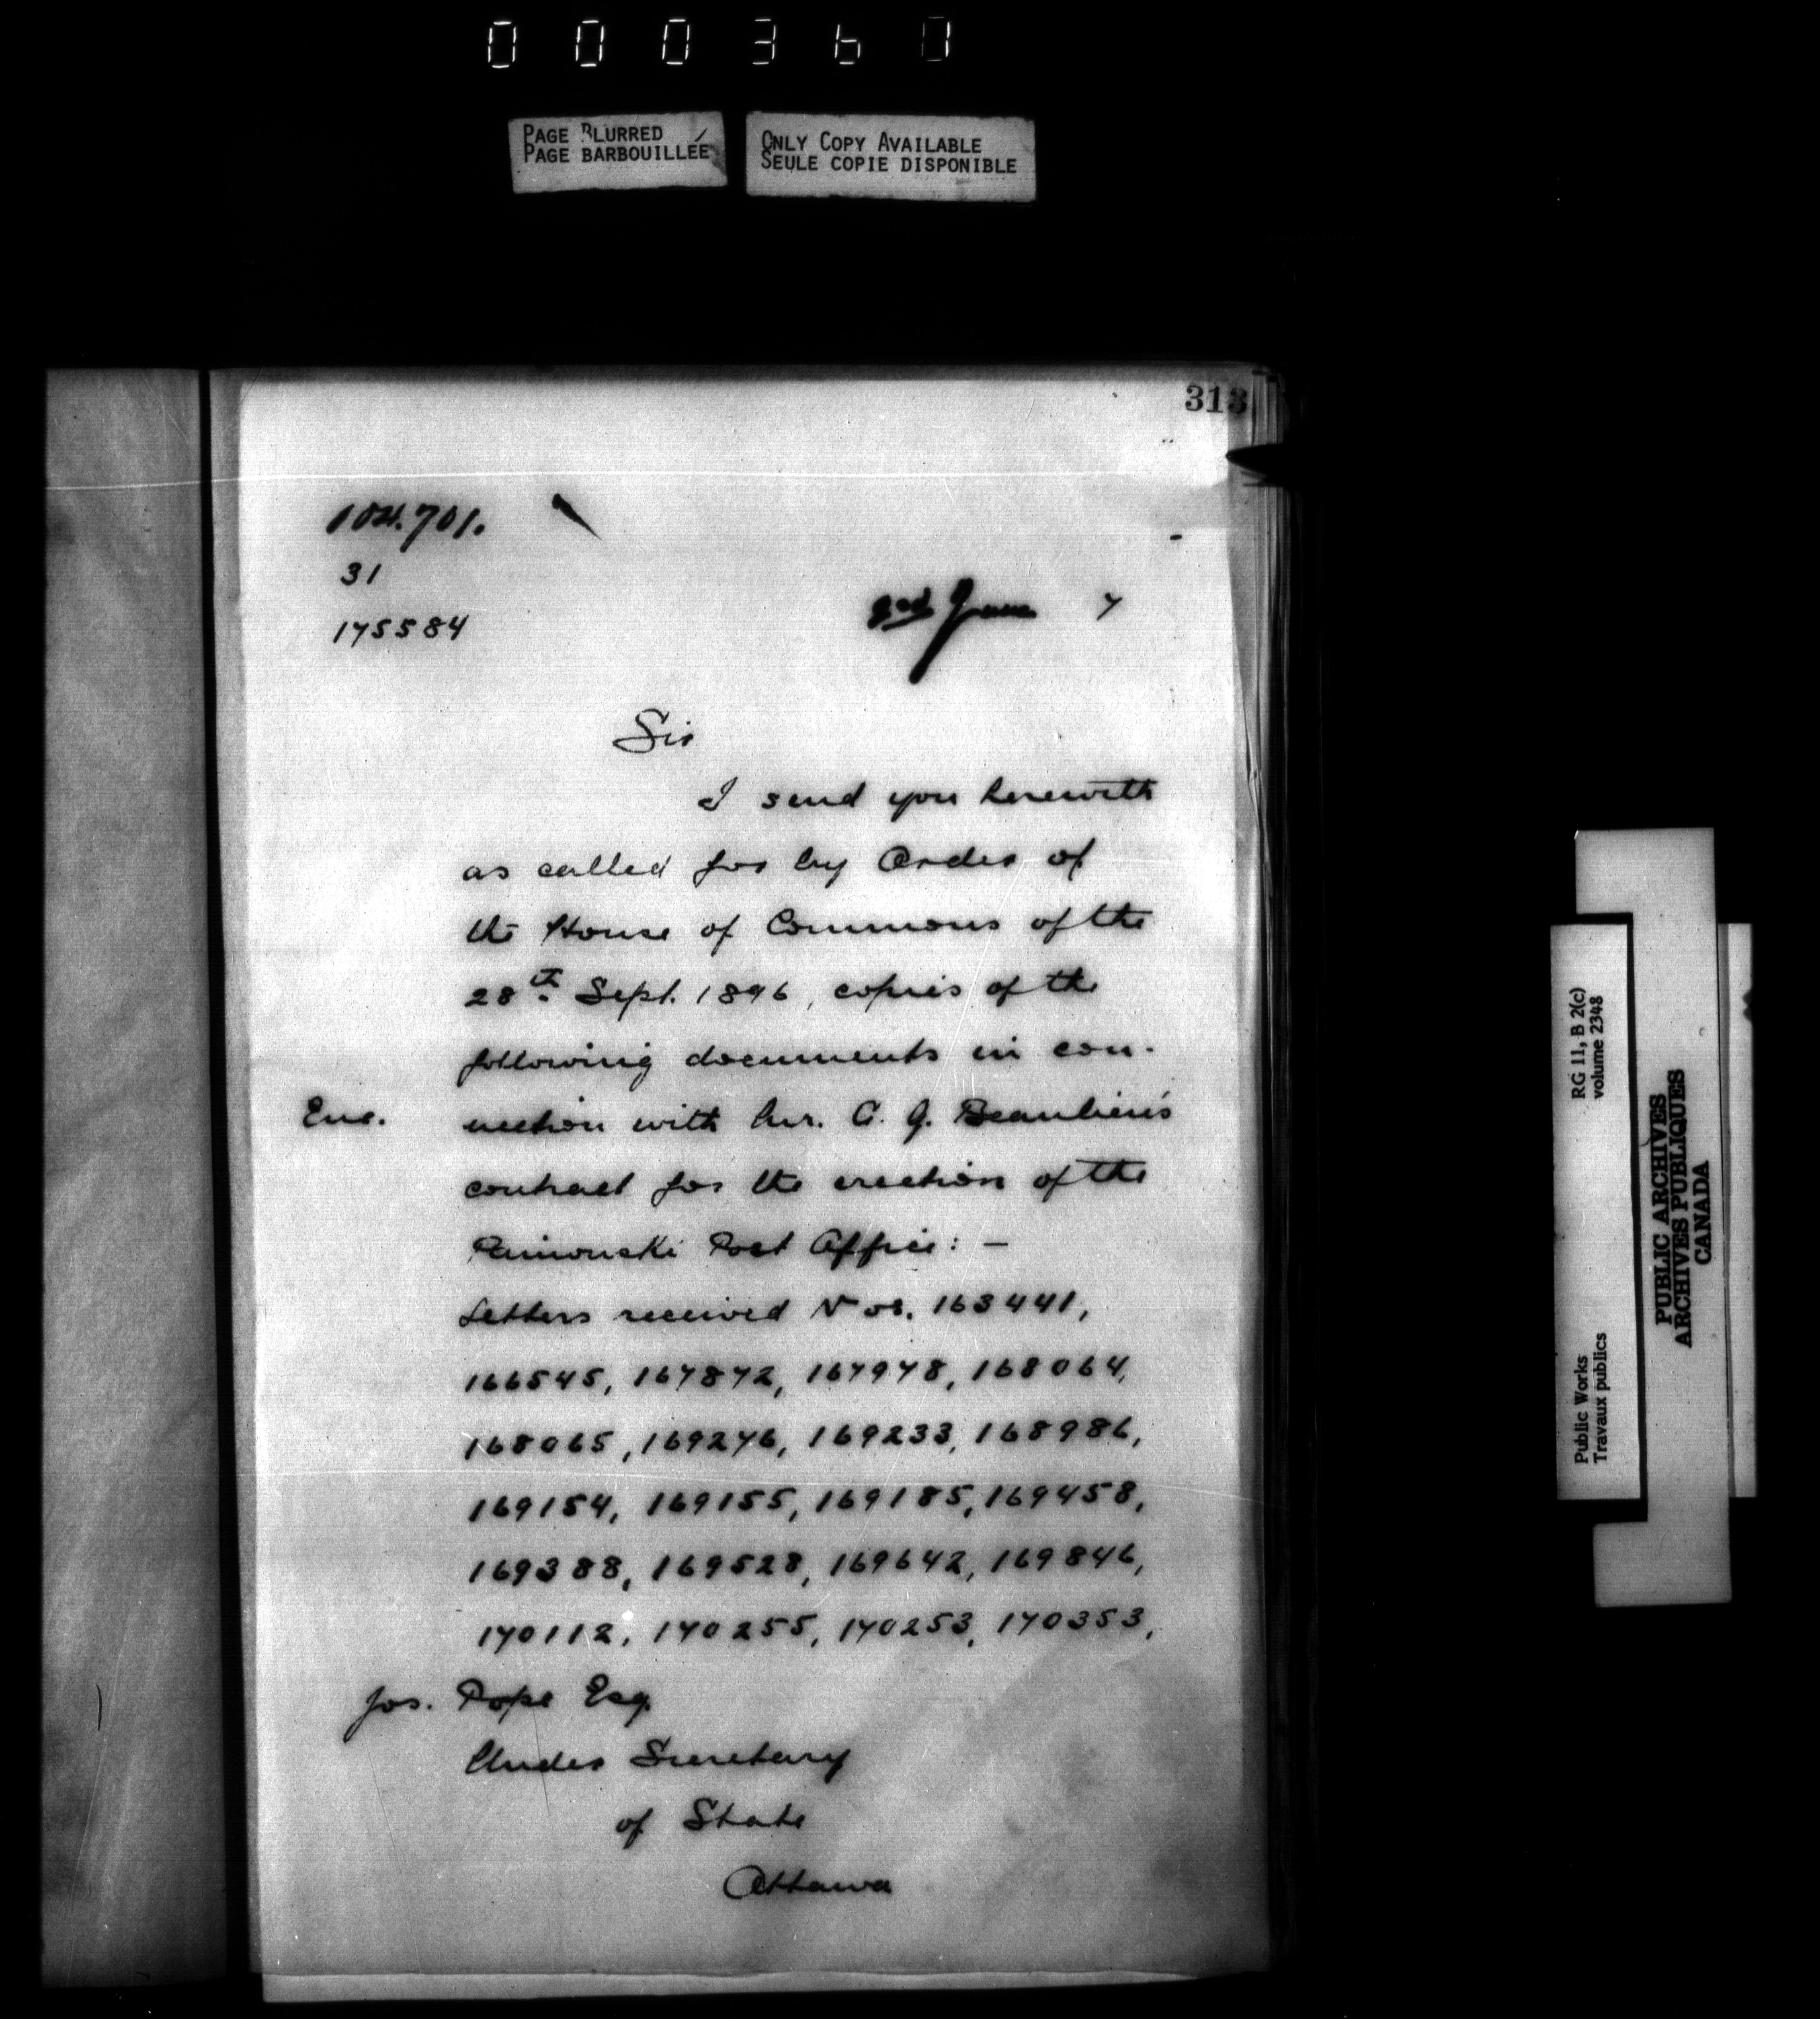 PAGE BLURRED
PAGE BARBOUILLÉE
ONLY COPY AVAILABLE
SEULE COPIE DISPONIBLE
313
701.
31
175584
2nd June 7
Sir
I send you herewith
as called for by Order of
the House of Commons of the
28th Sept. 1896, copies of the
following documents in con-
Enc. nection with Mr. C. G. Beaulieu's
contract for the erection of the
Rimouski Post Office: —
Letters received Nos. 163441,
166545, 167872, 167978, 168064,
168065, 169276, 169233, 168986,
169154, 169155, 169185, 169458,
169388, 169528, 169642, 169846,
170112, 170255, 170253, 170353,
Jos. Pope Esq.
Under Secretary
of State
Ottawa
RG 11, B 2(c)
volume 2348
Public Works
Travaux publics
PUBLIC ARCHIVES
ARCHIVES PUBLIQUES
CANADA